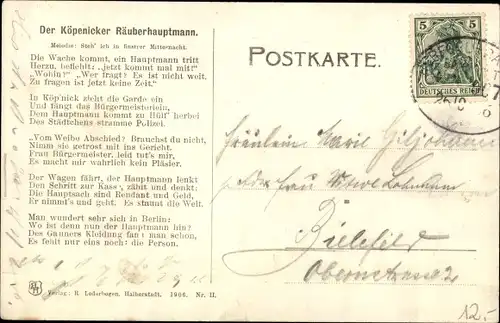 Der Köpenicker Räuberhauptmann.
Melodie: Steh' ich in finstrer Mitternacht.
Die Wache kommt, ein Hauptmann tritt
Herzu, befiehlt: „jetzt kommt mal mit!"
„Wohin?" „Wer fragt? Es ist nicht weit.
Zu fragen ist jetzt keine Zeit."
In Köp'nick zieht die Garde ein
Und fängt das Bürgermeisterlein,
Dem Hauptmann kommt zu Hülf' herbei
Des Städtchens stramme Polizei.
„Vom Weibe Abschied? Brauchst du nicht,
Nimm sie getrost mit ins Gericht.
Frau Bürgermeister, leid tut's mir,
Es macht mir wahrlich kein Pläsier.
Der Wagen fährt, der Hauptmann lenkt
Den Schritt zur Kass', zählt und denkt:
Die Hauptsach sind Rendant und Geld,
Er nimmt's und geht. Es staunt die Welt.
Man wundert sehr sich in Berlin:
Wo ist denn nun der Hauptmann hin?
Des Gauners Kleidung fan'l man schon,
Es fehlt nur eins noch: die Person.
Verlag: R. Lederbogen, Halberstadt. 1906. Nr. II.
POSTKARTE.
5 5
DEUTSCHES REICH
Fräulein Marie
Frau
Bielefeld
Obernstrasse 2
12,-